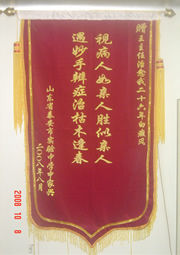 赠王主任治愈我二十六年白癜风
视病人如亲人胜似亲人
遇妙手辨症治枯木逢春
山东省泰安市实验中学申家兴
二〇〇八年八月
2008 10 8